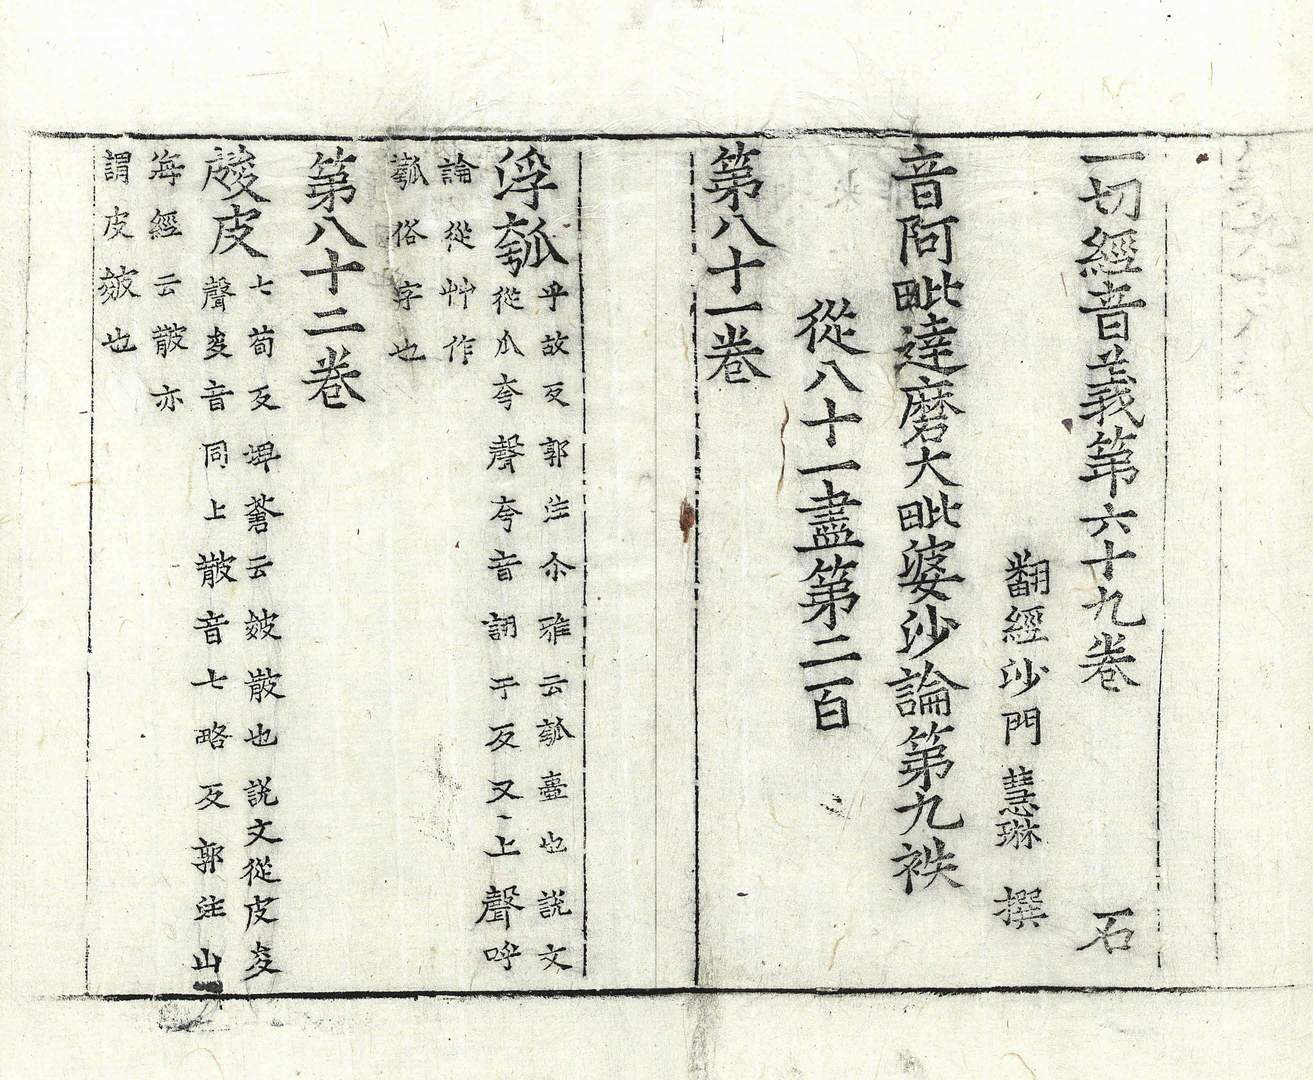 一切經音義第六十九卷 石
翻經沙門慧琳 撰
音阿毗達磨大毗婆沙論第九袟
從八十一盡第二百
第八十一卷
浮瓠 乎故反郭注尒雅云瓠壺也說文
從瓜夸聲夸音誇于反又上聲呼
論從艸作
瓠俗字也
第八十二卷
皴皮 七荀反埤蒼云皴皵也說文從皮夋
聲夋音同上皵音七略反郭注山
海經云皵亦
謂皮皴也